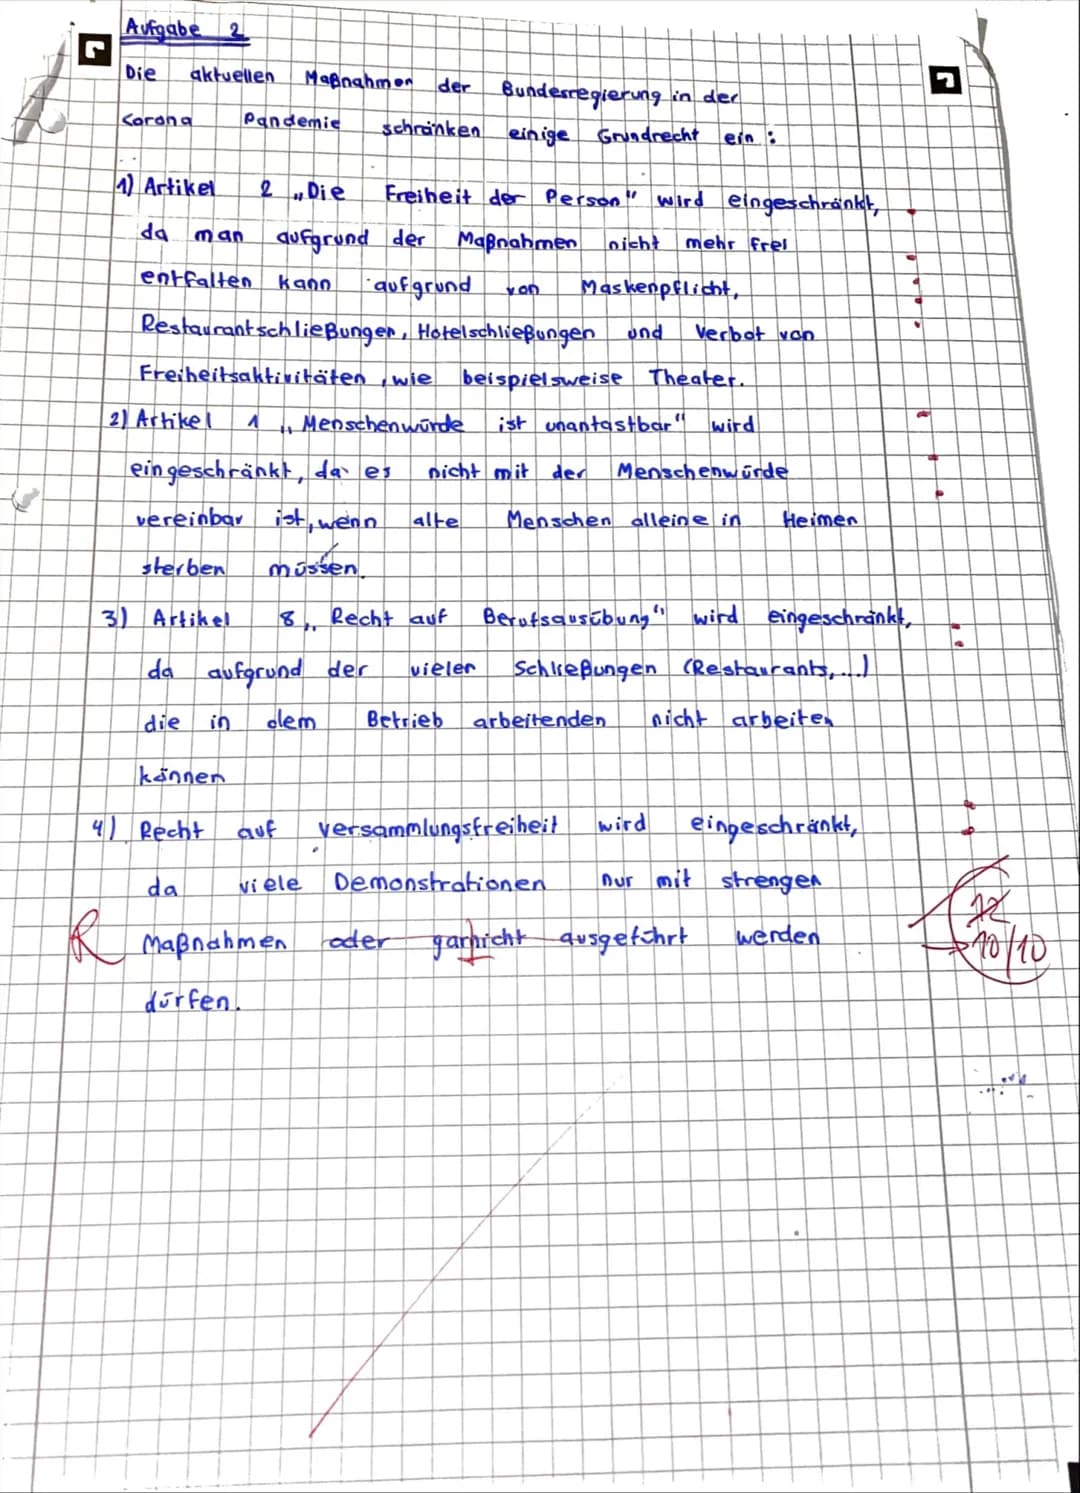 Aufgabe 2
Die aktuellen Maßnahmen der Bundesregierung in der
Corona Pandemie schränken einige Grundrecht ein :
1) Artikel 2 „Die Freiheit der Person" wird eingeschränkt,
da man aufgrund der Maßnahmen nicht mehr frei
entfalten kann aufgrund von Maskenpflicht,
Restaurantschließungen, Hotelschließungen und Verbot von
Freiheitsaktivitäten, wie beispielsweise Theater.
2) Artikel 1 „Menschenwürde ist unantastbar" wird
eingeschränkt, da es nicht mit der Menschenwürde
vereinbar ist, wenn alte Menschen alleine in Heimen
sterben müssen.
3) Artikel 8 „Recht auf Berufsausübung" wird eingeschränkt,
da aufgrund der vielen Schließungen (Restaurants,...)
die in dem Betrieb arbeitenden nicht arbeiten
können
4) Recht auf versammlungsfreiheit wird eingeschränkt,
da viele Demonstrationen nur mit strengen
R Maßnahmen oder garnicht ausgeführt werden
dürfen.
12
→ 10/10